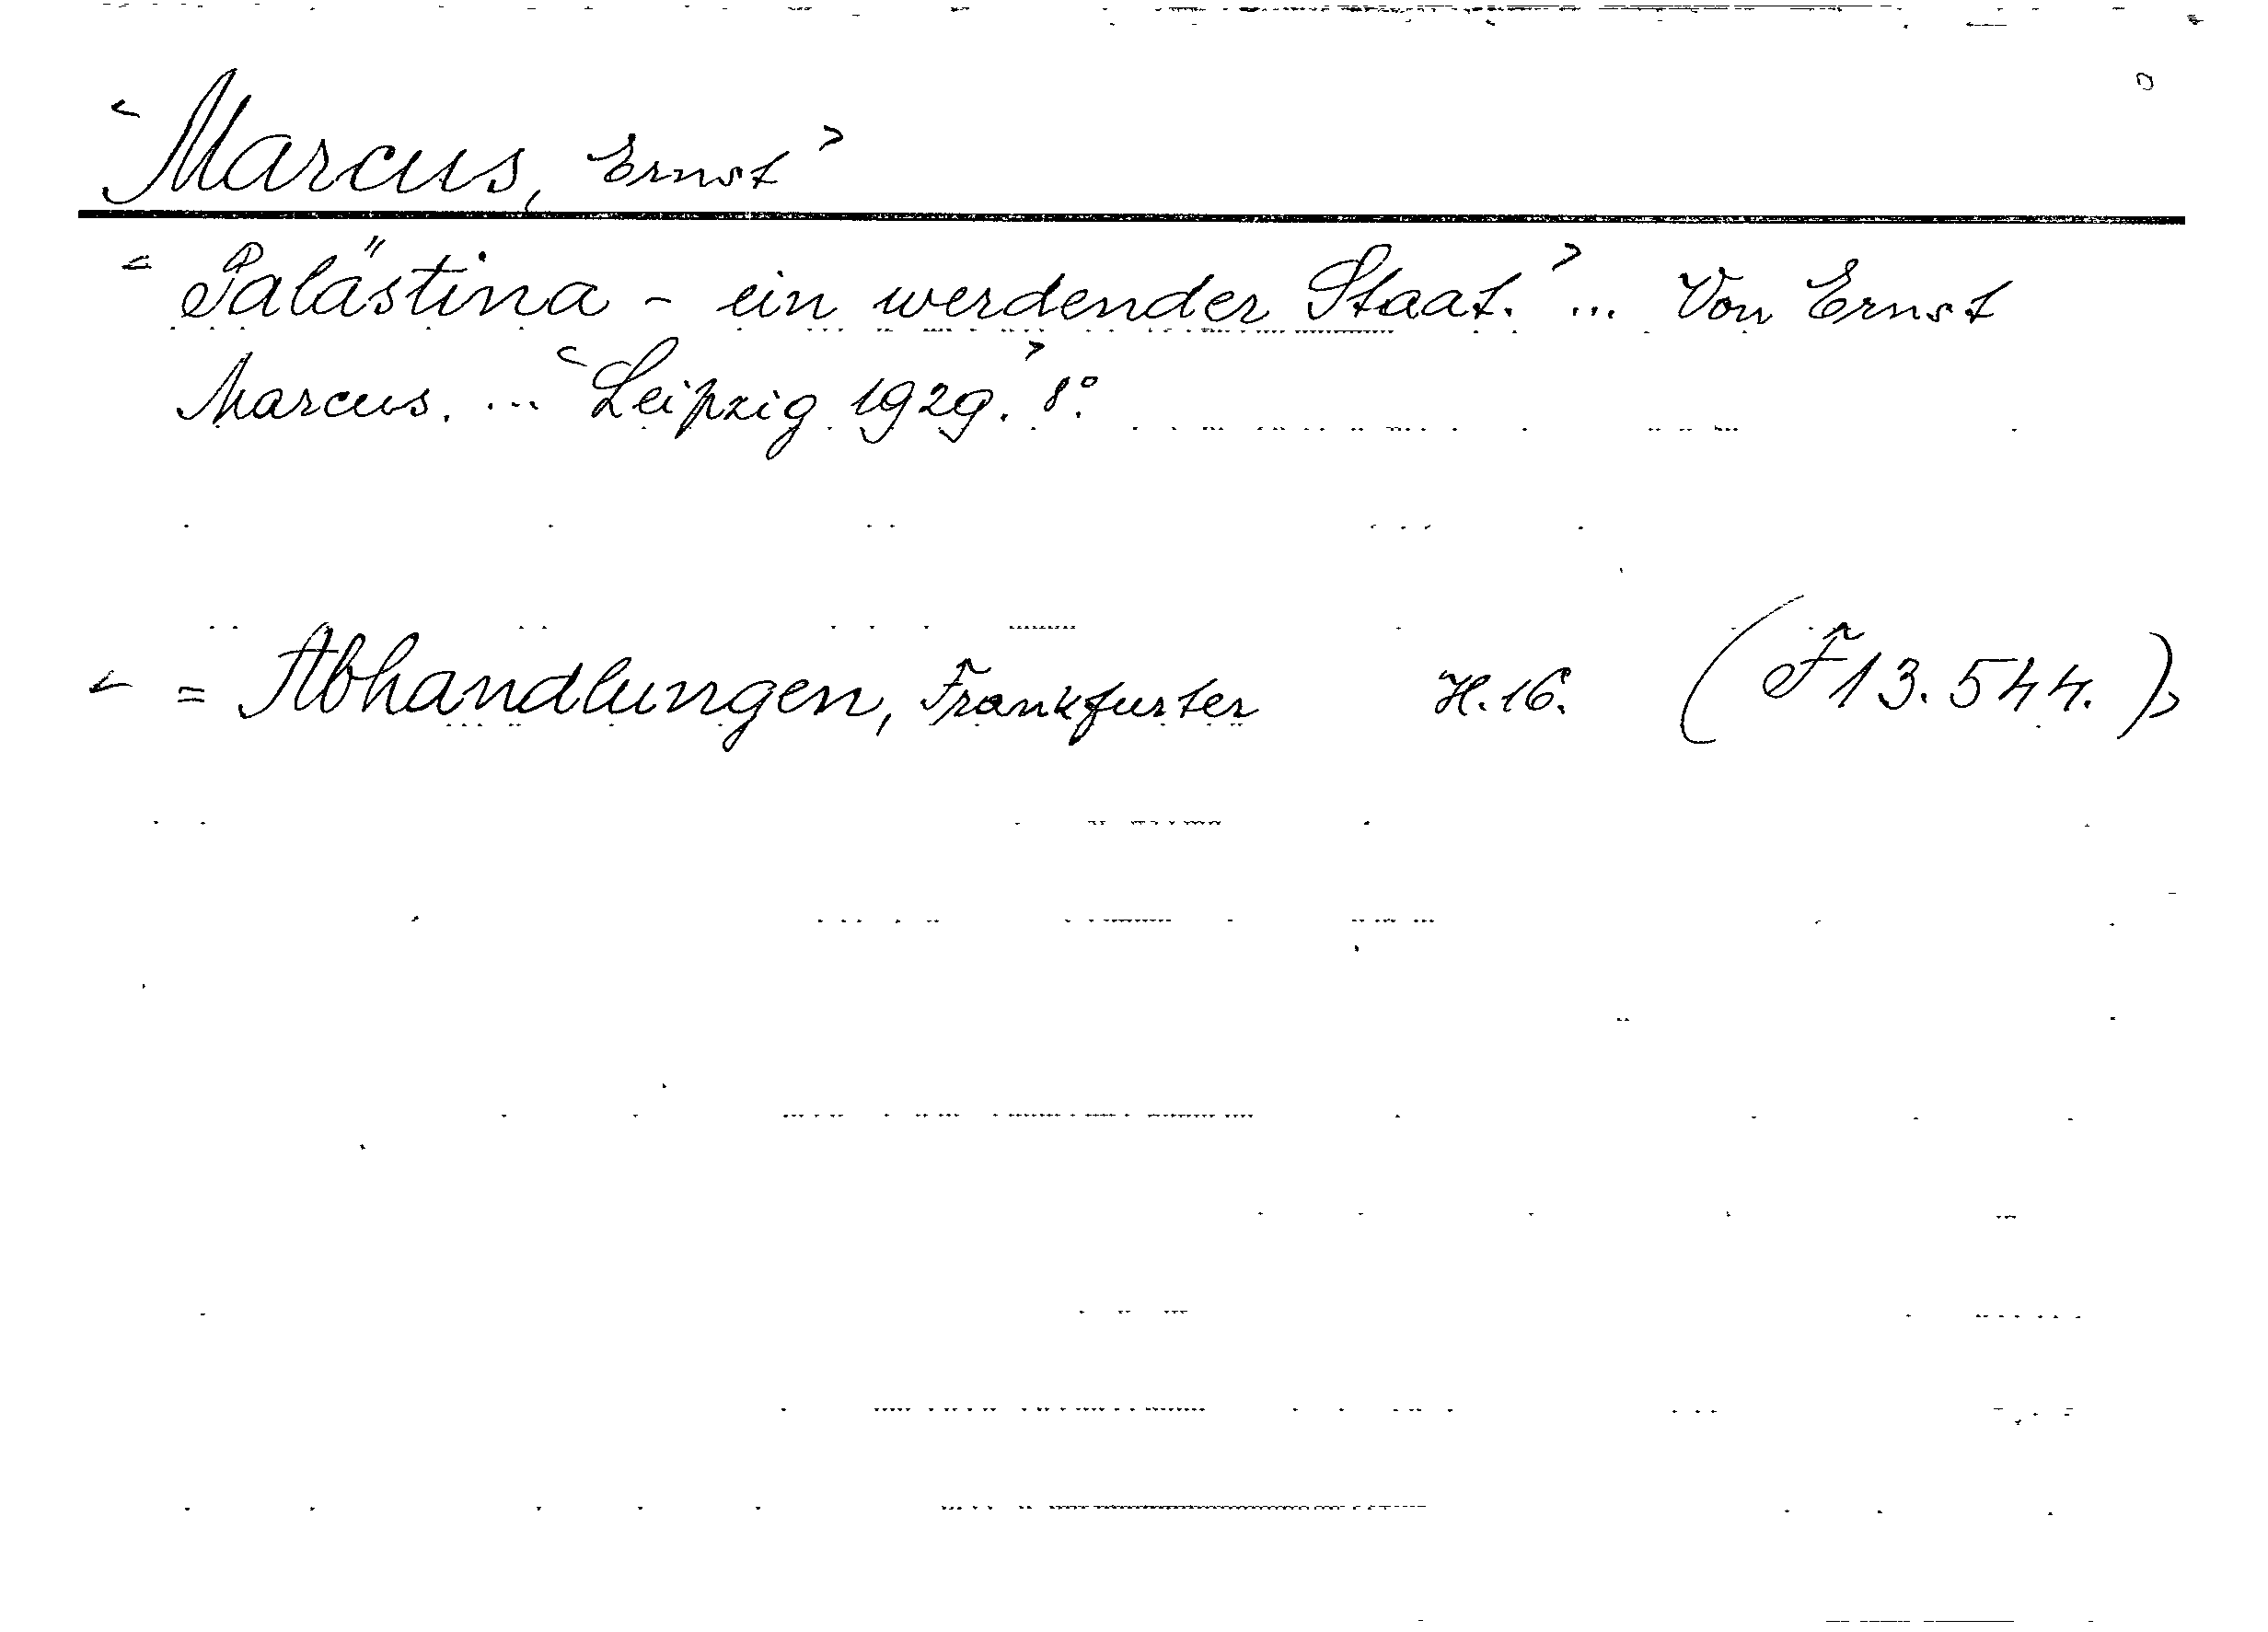 <Marcus, Ernst>
<Palästina - ein werdender Staat.> ... Von Ernst
Marcus. ... <Leipzig 1929.> 8°.
< = Abhandlungen, Frankfurter H. 16. (F 13.544.)>